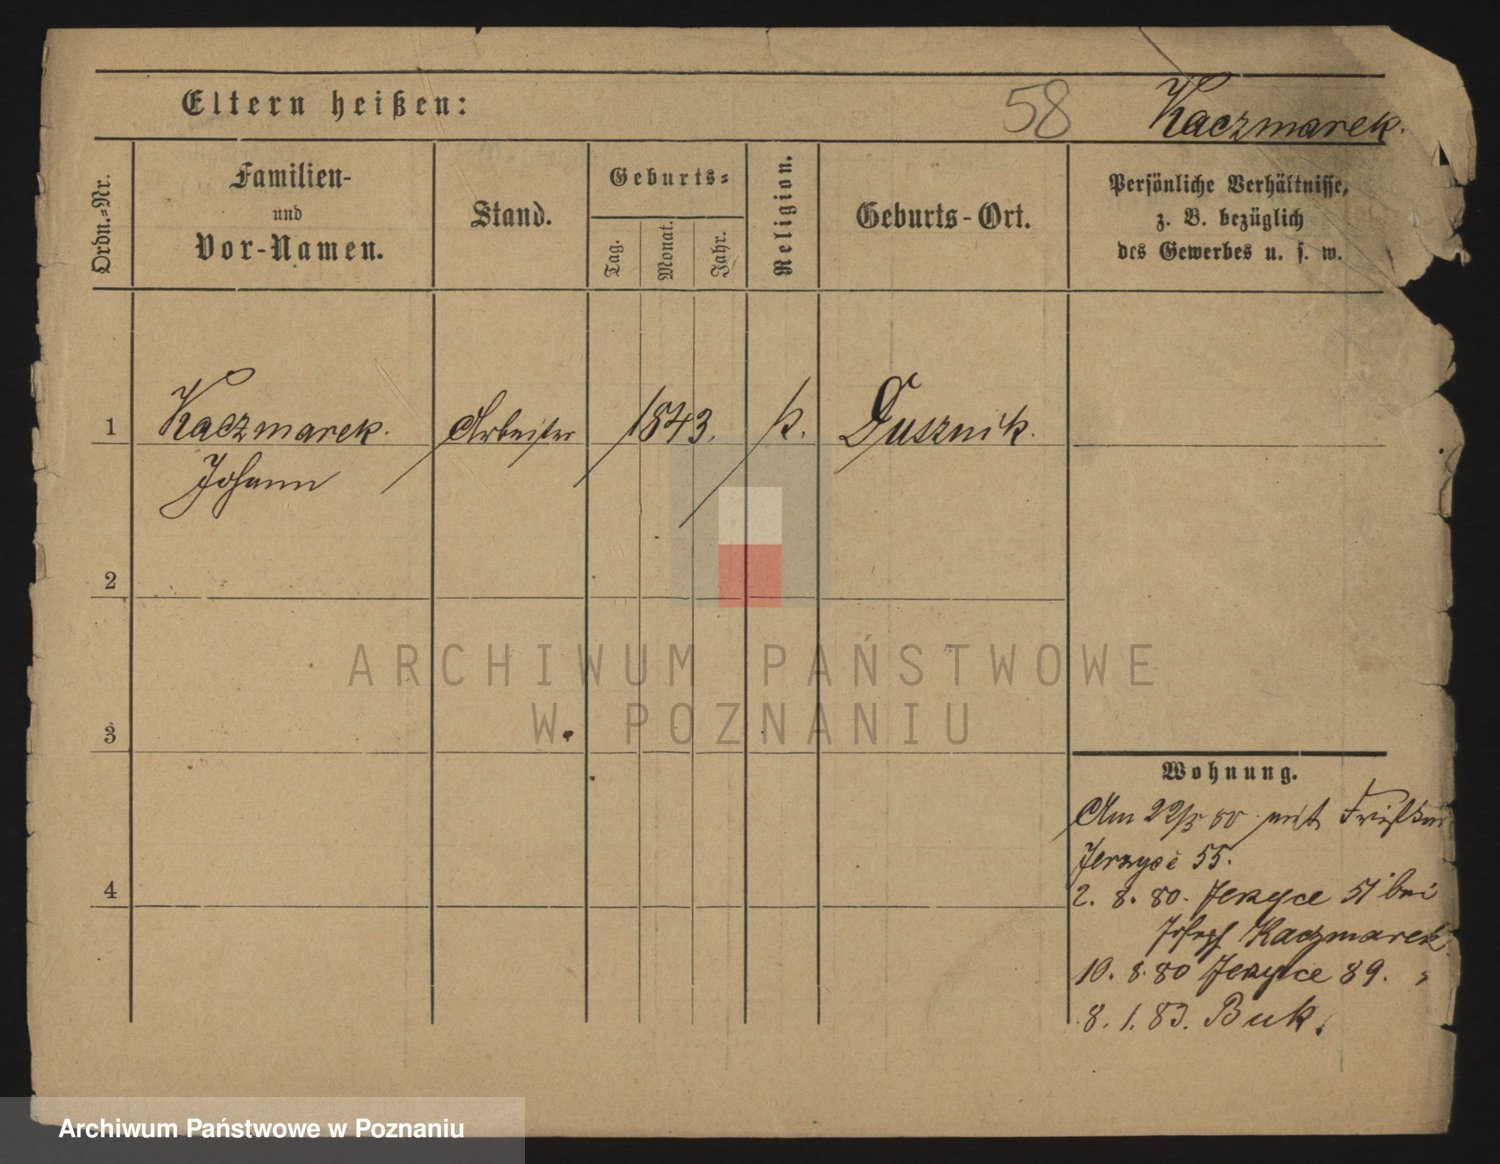 Eltern heißen:
58
Kaczmarek.
Ordn.-Nr.
Familien-
und
Vor-Namen.
Stand.
Geburts-
Tag.
Monat.
Jahr.
Religion.
Geburts-Ort.
Persönliche Verhältnisse,
z. B. bezüglich
des Gewerbes u. s. w.
1
Kaczmarek.
Johann
Arbeiter
1843.
k.
Dusznik.
2
3
4
ARCHIWUM PAŃSTWOWE
W POZNANIU
Wohnung.
Am 22/5 80
Jerzyce 55.
2. 8. 80. Jerzyce 51 bei
Joseph Kaczmarek
10. 8. 80 Jerzyce 89.
8. 1. 83. Buk.
Archiwum Państwowe w Poznaniu